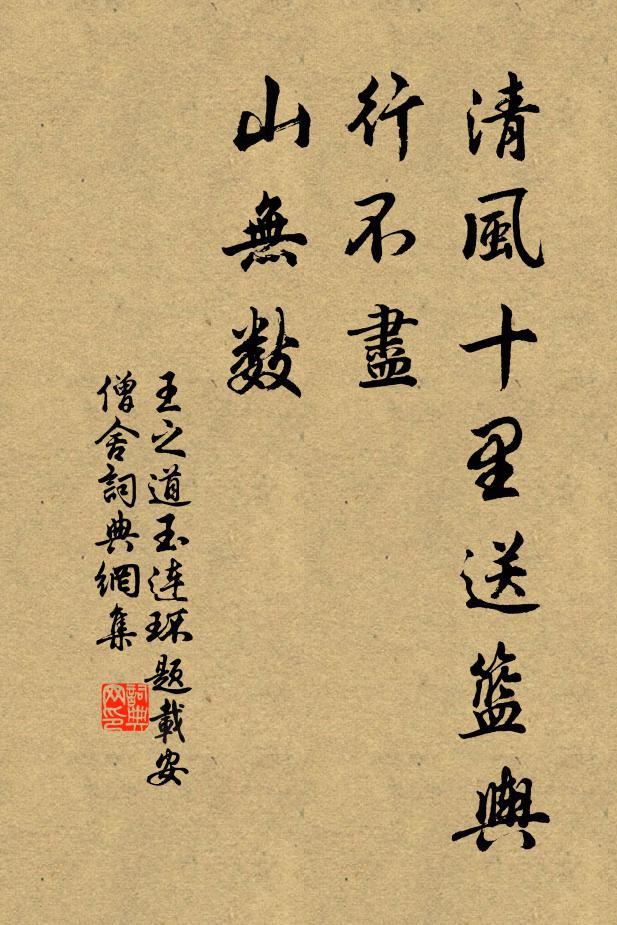 清風十里送籃輿
行不盡
山無数
王之道玉連环題載安
僧舍詞典網集
詞典
网印